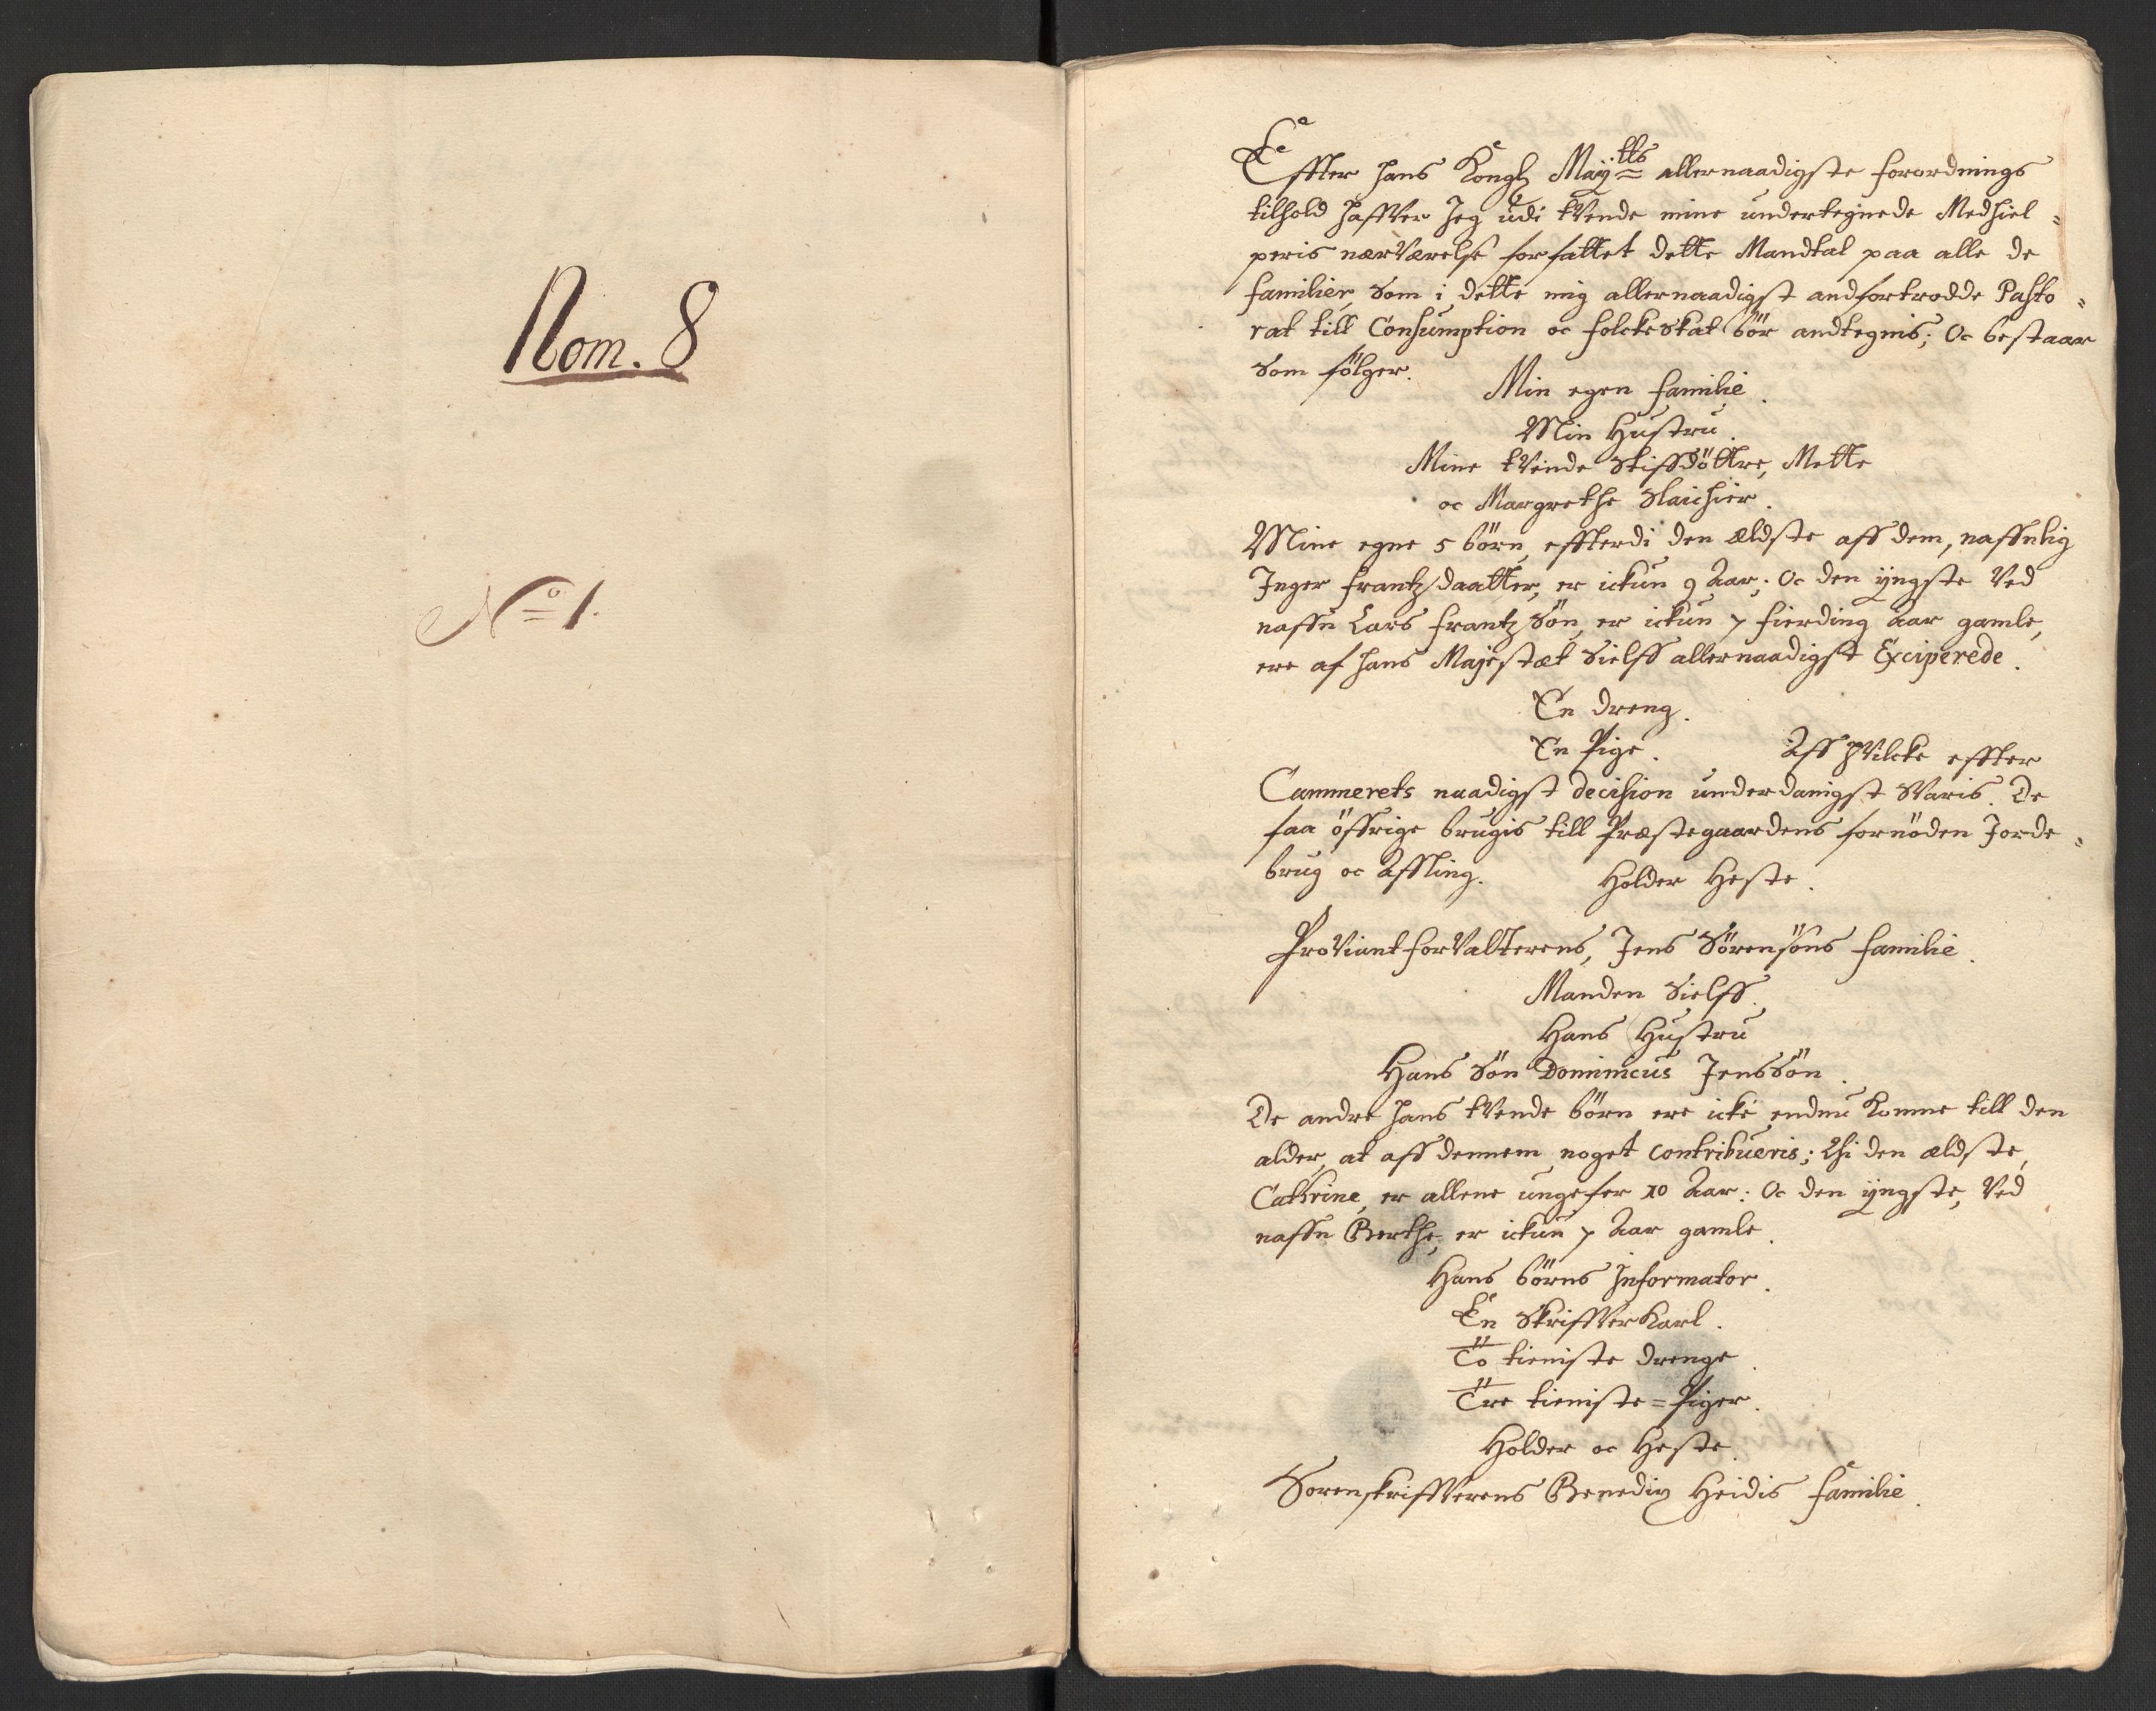 Nom. 8
No 1.
Effter hans Kongl Maÿtts allernaadigste forordnings
tilhold haffver Jeg udi tvende mine undertegnede Medhiel=
peris nærværelse forfattet dette Mandtal paa alle de
familier, som i dette mig allernaadigst andfortrodde Pasto=
rat till Consumption oc folckeskat bör andtegnis; Oc bestaar
som fölger.
Min egen familie.
Min Hustru.
Mine tvende Stiffdöttre, Mette
oc Margrethe
Mine egne 5 börn, effterdi den ældste aff dem, naffnlig
Inger frantzdaatter, er ickun 9 Aar; Oc den ÿngste ved
naffn Lars frantzsön, er ickun 7 fierding Aar gamle,
ere af hans Majestæt sielff allernaadigst Exciperede.
En dreng.
En Pige. Aff hvilcke effter
Cammerets naadigst decision underdanigst svaris. De
faa öffrige brugis till Præstegaardens fornöden Jorde=
brug oc Affling. Holder Heste.
Proviantforvalterens, Jens Sörensöns familie.
Manden Sielff.
Hans Hustru
Hans Sön Dominicus Jenssön.
De andre hans tvende börn ere icke endnu komne till den
alder, at aff dennem noget contribueris; Thi den ældste,
Cathrine, er allene ungefer 10 Aar: Oc den ÿngste, ved
naffn Berthe, er ickun 7 Aar gamle.
Hans börns Informator.
En Skriffverkarl.
To tieniste drenge.
Tre tieniste=Piger.
Holder oc Heste.
Sorenskriffverens Benedix Heidis familie.